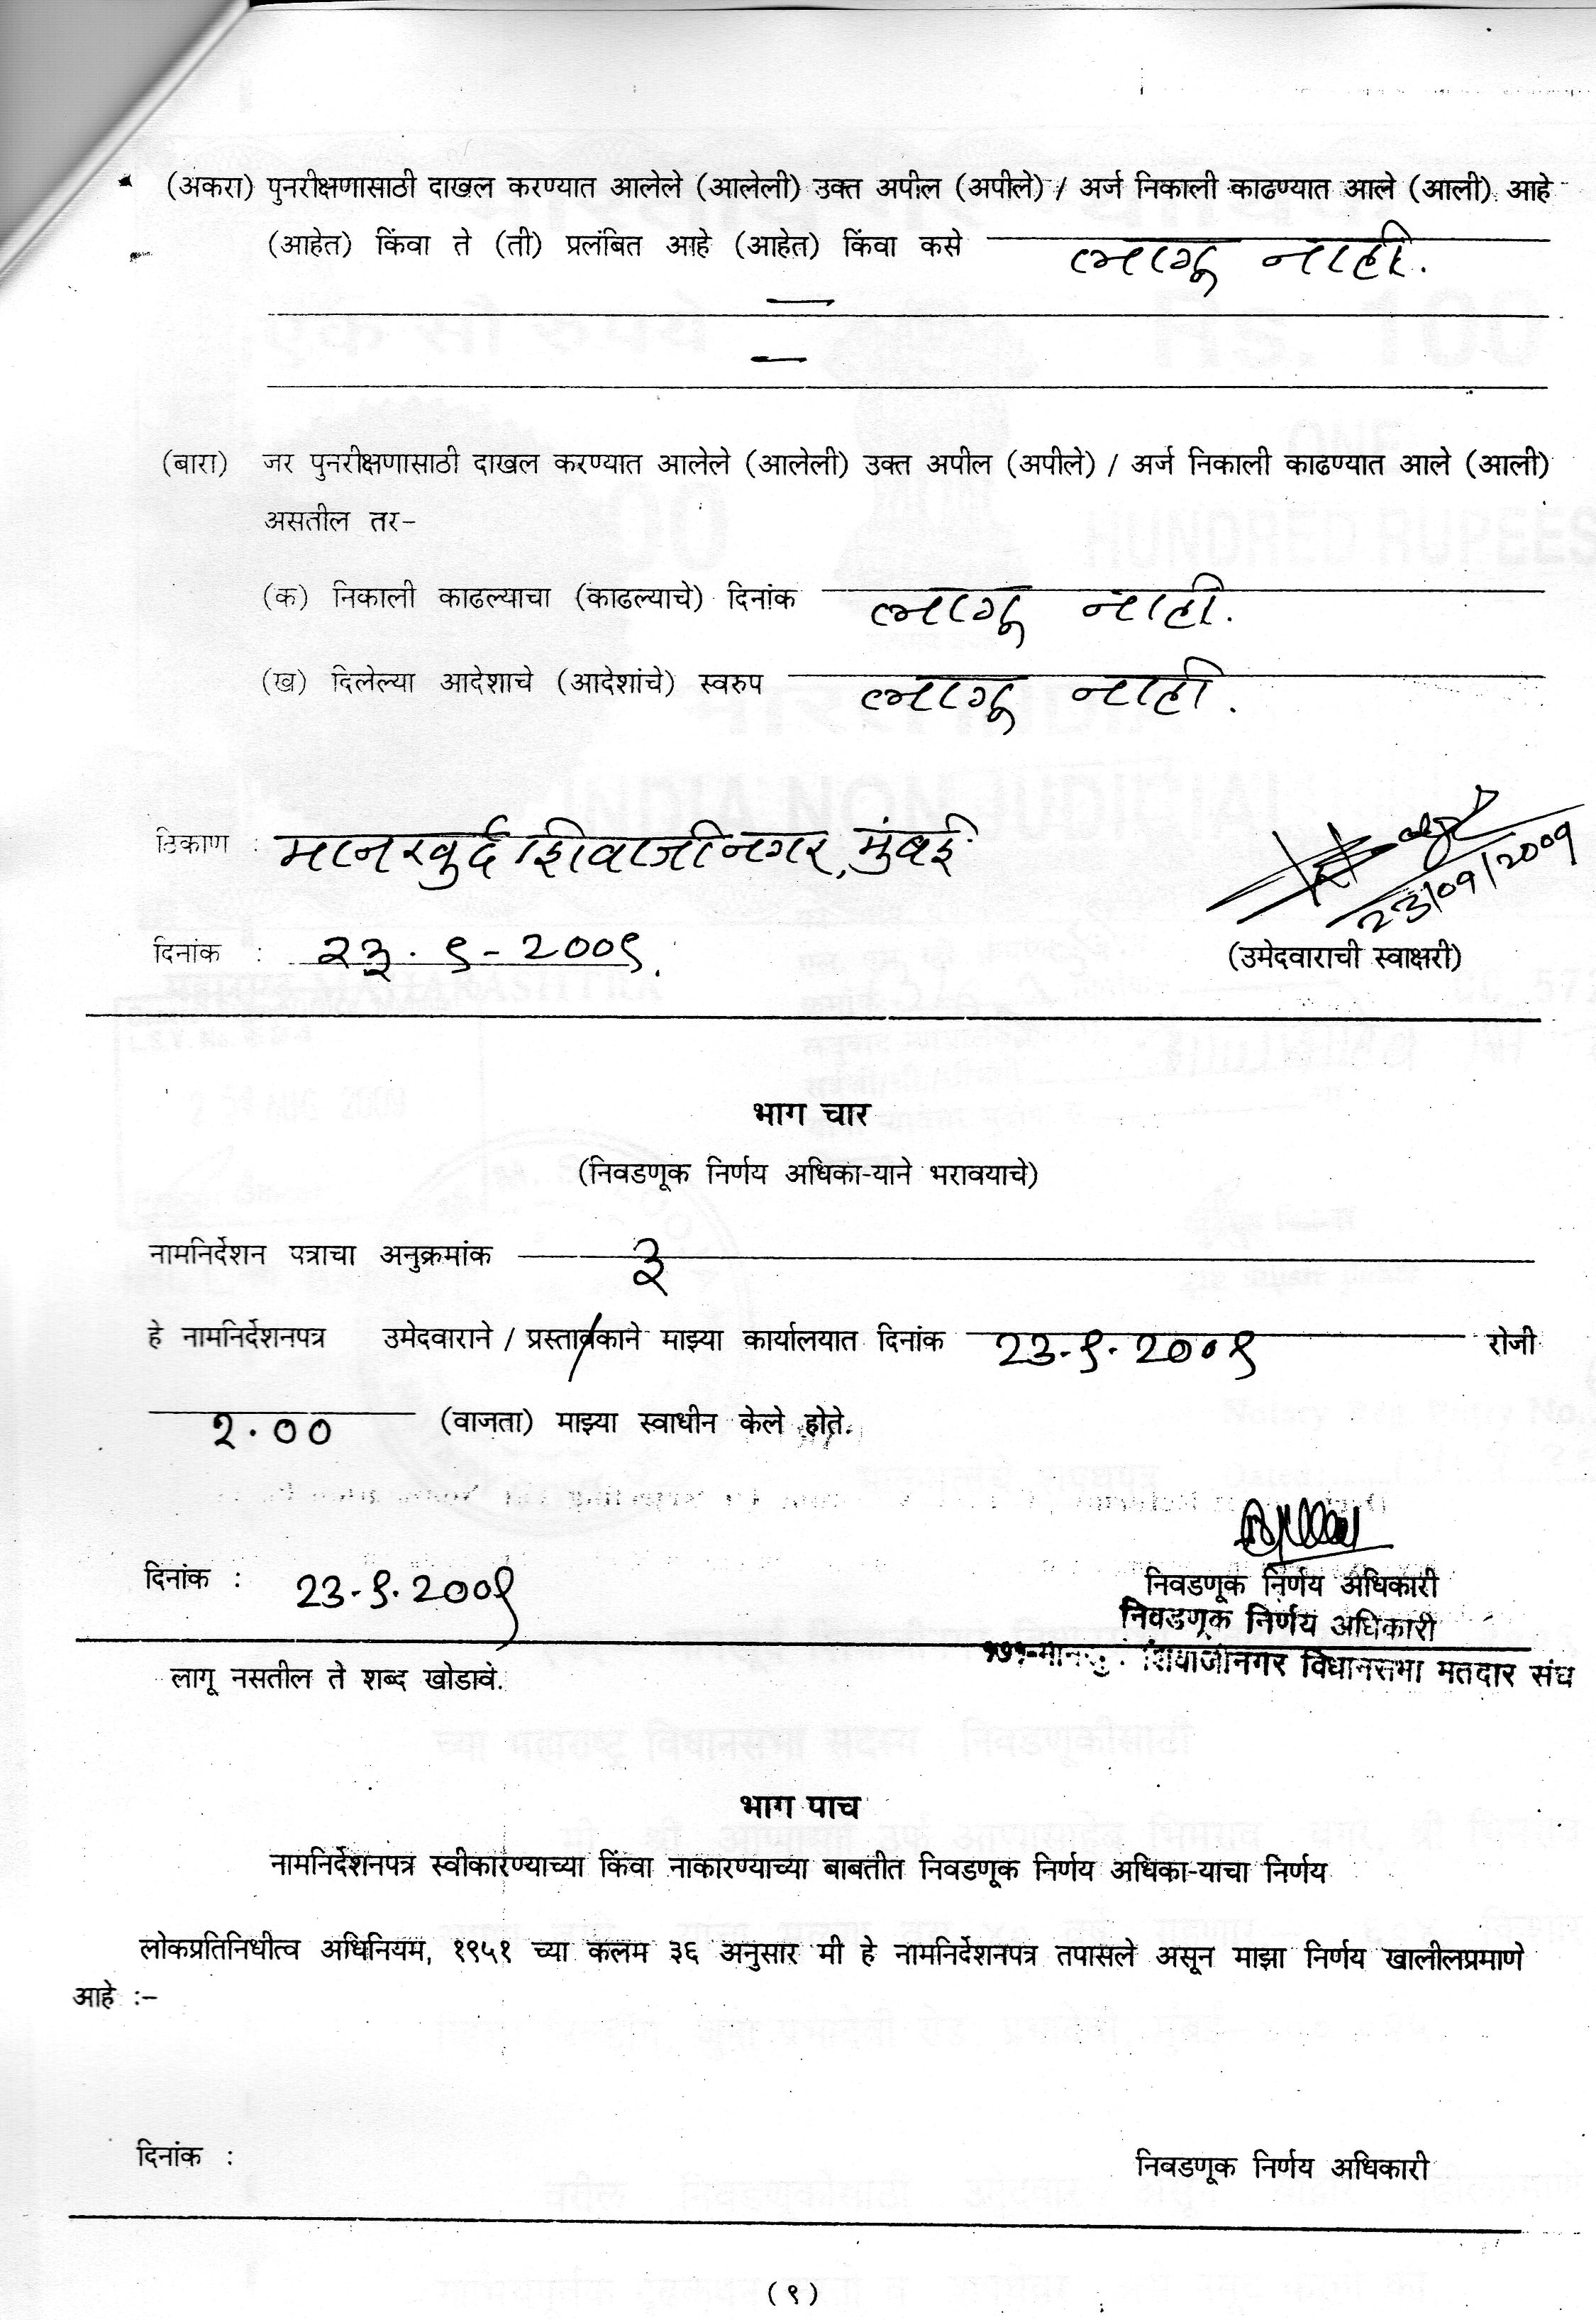 (अकरा) पुनरीक्षणासाठी दाखल करण्यात आलेले (आलेली) उक्त अपील (अपीले) / अर्ज निकाली काढण्यात आले (आली) आहे
(आहेत) किंवा ते (ती) प्रलंबित आहे (आहेत) किंवा कसे लागू नाही.
(बारा) जर पुनरीक्षणासाठी दाखल करण्यात आलेले (आलेली) उक्त अपील (अपीले) / अर्ज निकाली काढण्यात आले (आली)
असतील तर-
(क) निकाली काढल्याचा (काढल्याचे) दिनांक लागू नाही.
(ख) दिलेल्या आदेशाचे (आदेशांचे) स्वरुप लागू नाही.
ठिकाण : मानखुर्द शिवाजीनगर, मुंबई
23/09/2009
दिनांक : २३.९-२००९.
(उमेदवाराची स्वाक्षरी)
भाग चार
(निवडणूक निर्णय अधिका-याने भरावयाचे)
नामनिर्देशन पत्राचा अनुक्रमांक ३
हे नामनिर्देशनपत्र उमेदवाराने / प्रस्तावकाने माझ्या कार्यालयात दिनांक २३-९-२००९ रोजी
२.०० (वाजता) माझ्या स्वाधीन केले होते.
दिनांक : २३-९-२००९
निवडणूक निर्णय अधिकारी
निवडणूक निर्णय अधिकारी
शिवाजीनगर विधानसभा मतदार संघ
लागू नसतील ते शब्द खोडावे.
भाग पाच
नामनिर्देशनपत्र स्वीकारण्याच्या किंवा नाकारण्याच्या बाबतीत निवडणूक निर्णय अधिका-याचा निर्णय
लोकप्रतिनिधीत्व अधिनियम, १९५१ च्या कलम ३६ अनुसार मी हे नामनिर्देशनपत्र तपासले असून माझा निर्णय खालीलप्रमाणे
आहे :-
दिनांक :
निवडणूक निर्णय अधिकारी
(९)